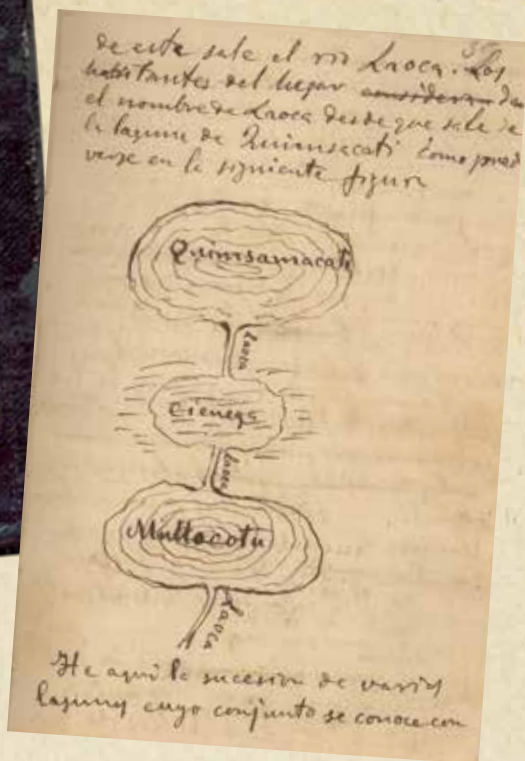 de este sale el rio Laoca. Los
habitantes del lugar consideran dan
el nombre de Laoca desde que sale de
la laguna de Quimsacati como puede
verse en la siguiente figura
Quimsamacati
Laoca
Cienega
Laoca
Mullocotu
Laoca
He aqui la sucesion de varias
lagunas cuyo conjunto se conoce con